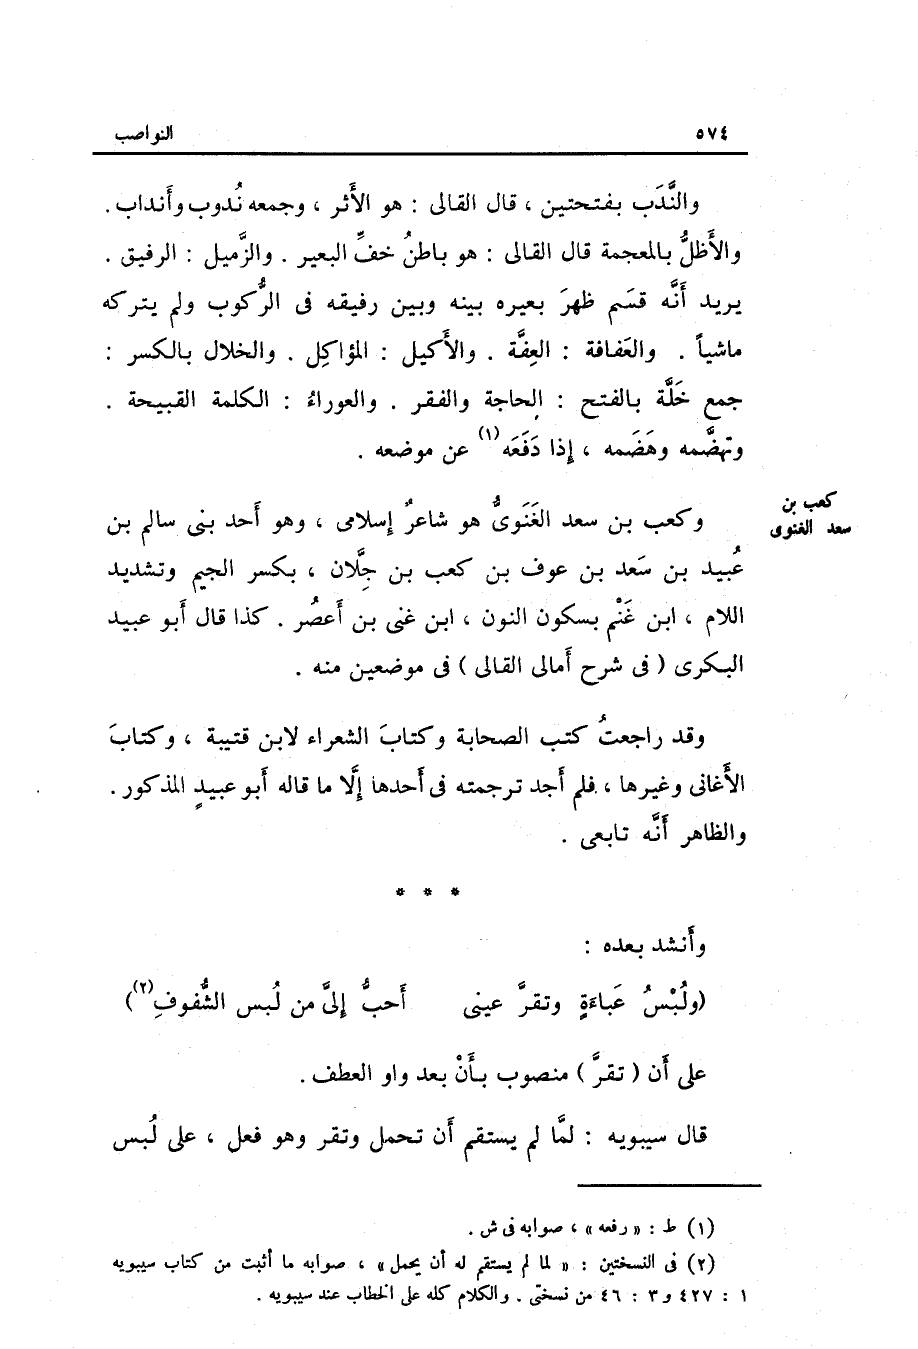 ٥٧٤ النواصب
والنَّدَب بفتحتين ، قال القالى : هو الأَثر ، وجمعه نُدوب وأَنداب .
والأَظلُّ بالمعجمة قال القالى : هو باطنُ خفِّ البعير . والزَّميل : الرفيق .
يريد أَنَّه قسَم ظهرَ بعيره بينه وبين رفيقه فى الرُّكوب ولم يتركه
ماشياً . والعَفافة : العِفَّة . والأَكيل : المؤاكِل . والخلال بالكسر :
جمع خَلَّة بالفتح : الحاجة والفقر . والعوراءُ : الكلمة القبيحة .
وتهضَّمه وهَضَمه ، إِذا دَفَعَه (١) عن موضعه .
كعب بن
سعد الغنوى
وكعب بن سعد الغَنَوىُّ هو شاعرٌ إِسلامى ، وهو أَحد بنى سالم بن
عُبيد بن سَعد بن عوف بن كعب بن جِلَّان ، بكسر الجيم وتشديد
اللام ، ابن غَنْم بسكون النون ، ابن غنى بن أَعصُر . كذا قال أَبو عبيد
البكرى ( فى شرح أَمالى القالى ) فى موضعين منه .
وقد راجعتُ كتب الصحابة وكتابَ الشعراء لابن قتيبة ، وكتابَ
الأَغانى وغيرها ، فلم أَجد ترجمته فى أَحدها إِلَّا ما قاله أَبو عبيدٍ المذكور .
والظاهر أَنَّه تابعى .
* * *
وأَنشد بعده :
(ولُبْسُ عَباءَةٍ وتقرَّ عينى أَحبُّ إِلىَّ من لُبس الشُّفوفِ (٢))
على أَن ( تقرَّ ) منصوب بأَنْ بعد واو العطف .
قال سيبويه : لمَّا لم يستقم أَن تحمل وتقر وهو فعل ، على لُبس
(١) ط : « رفعه » ، صوابه فى ش .
(٢) فى النسختين : « لما لم يستقم له أن يحمل » ، صوابه ما أثبت من كتاب سيبويه
١ : ٤٢٧ و ٣ : ٤٦ من نسختى . والكلام كله على الخطاب عند سيبويه .